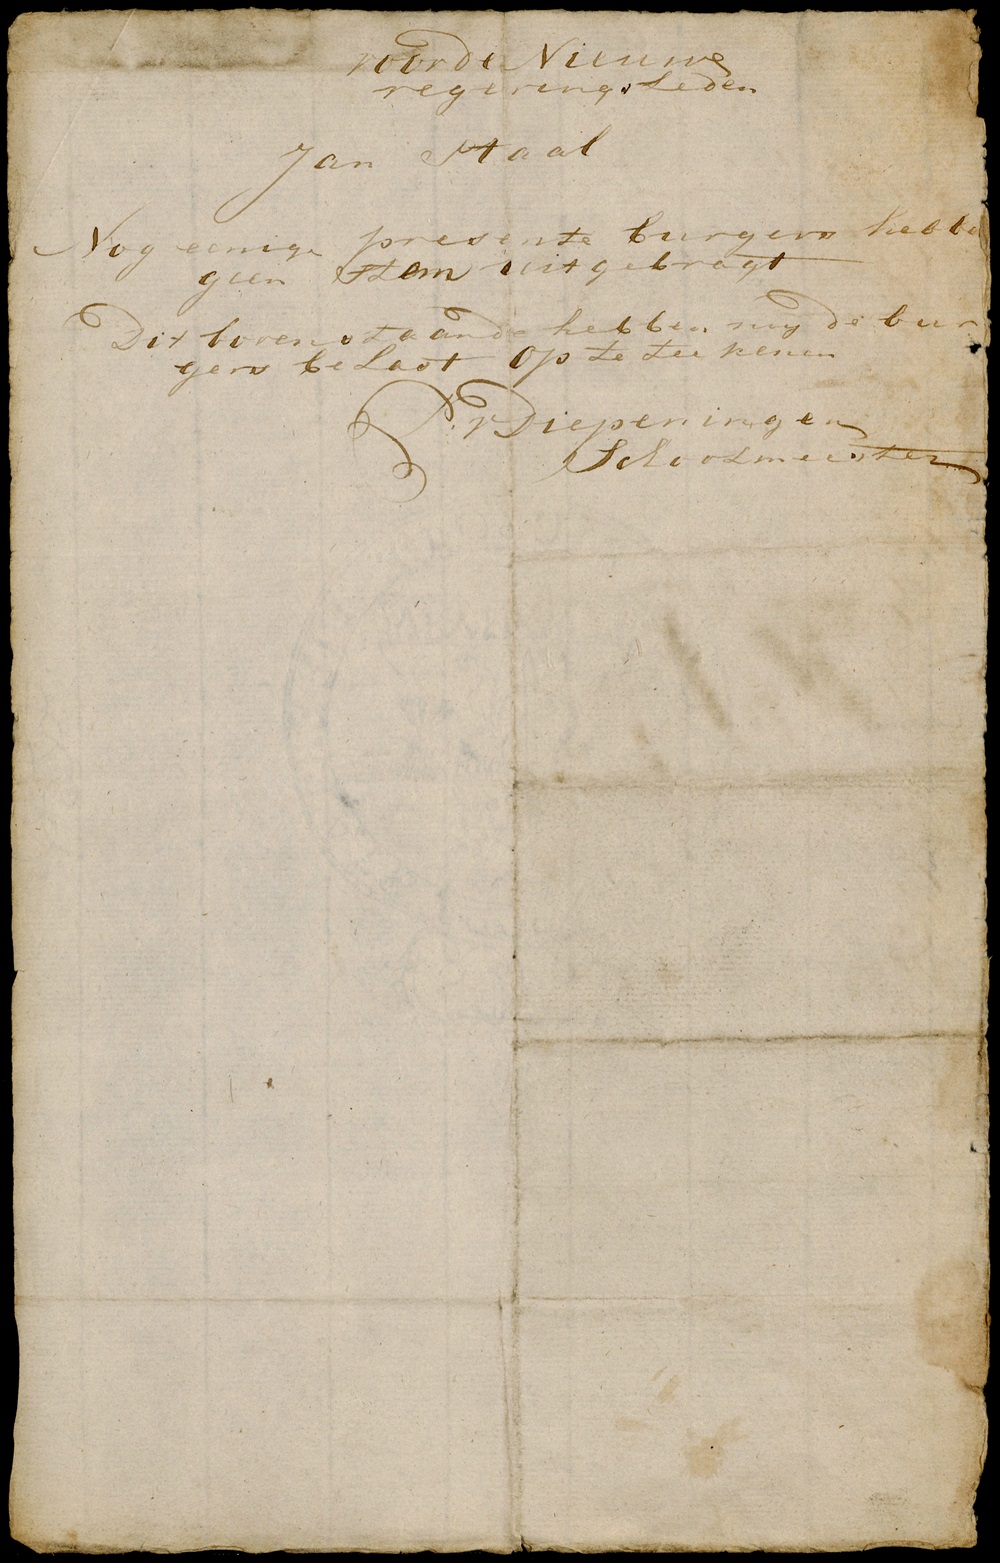 voor de Nieuwe
regerings Leden
Jan Staal
Nog eenige presente burgers hebbe
geen stem uitgebragt
Dit bovenstaande hebben my de bur
gers belast op te teekenen
P. v Diepeningen
Schoolmeester